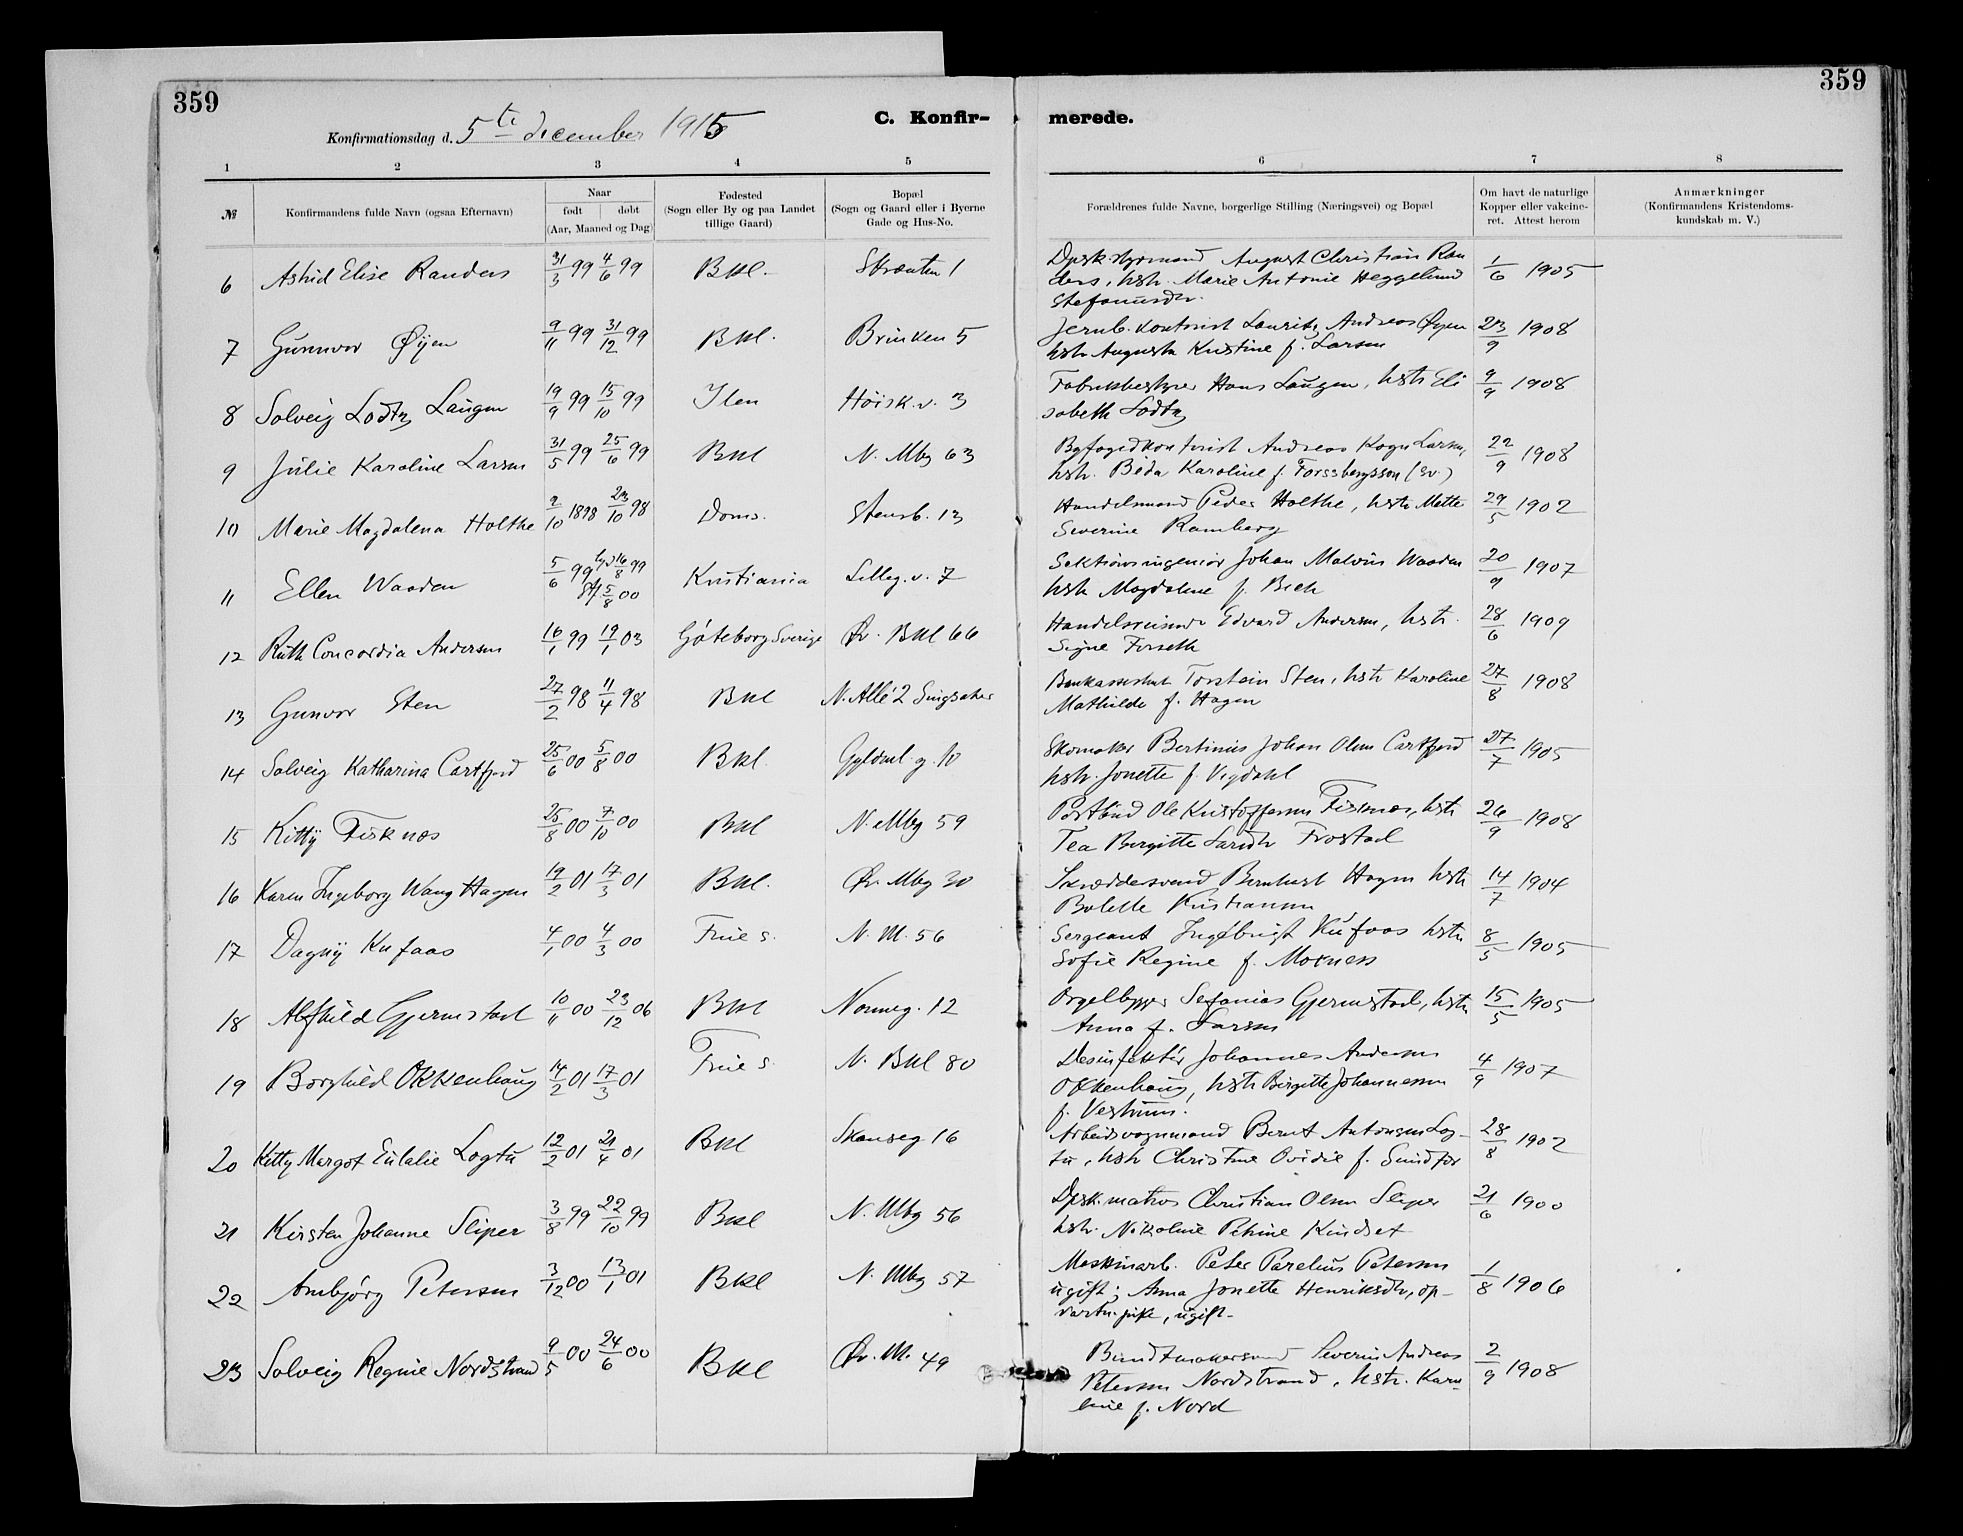 359
359
Konfirmationsdag d. 5te december 1915
C. Konfir- merede.
1 2 3 4 5 6 7 8
№
Konfirmandens fulde Navn (ogsaa Efternavn)
Naar
født døbt
(Aar, Maaned og Dag)
Fødested
(Sogn eller By og paa Landet
tillige Gaard)
Bopæl
(Sogn og Gaard eller i Byerne
Gade og Hus-No.
Forældrenes fulde Navne, borgerlige Stilling (Næringsvei) og Bopæl
Om havt de naturlige
Kopper eller vakcine-
ret. Attest herom
Anmærkninger
(Konfirmandens Kristendoms-
kundskab m. V.)
6 Astrid Elise Randers 31/3 99 4/6 99 Bkl. Skrænten 1 Dpsk.styrmand August Christian Ran 1/6 1905
ders, hstr. Marie Antonie Heggelund
Stefanusdtr.
7 Gunnvor Øyen 9/11 99 31/12 99 Bkl. Brinken 5 Jernb. kontorist Lauritz Andreas Øyen 23/9 1908
hstr Augusta Kristine f. Larsen
8 Solveig Lodtz Laugen 19/9 99 15/10 99 Ilen Høisk.v. 3 Fabrikbestyrer Hans Laugen, hstr Eli 9/9 1908
sabeth Lodtz
9 Julie Karoline Larsen 31/5 99 25/6 99 Bkl N. Mbg 63 Byfogedkontorist Andreas Larsen, 22/9 1908
hstr. Beda Karoline f. Forssbergsson (Sv.)
10 Marie Magdalena Holthe 2/10 1898 23/10 98 Doms. Stensb. 13 Handelsmand Peder Holthe, hstr Mette 29/5 1902
Severine Ramberg
11 Ellen Waaden 5/6 99 16/8 99 5/8 00 Kristiania Lilleg.v. 7 Sektionsingeniør Johan Malvin Waaden 20/9 1907
hstr Magdalene f. Bich
12 Ruth Concordia Andersen 16/1 99 19/1 03 Göteborg Sverige Øv. Bkl 66 Handelsreisende Edvard Andersen, hstr. 28/6 1909
Signe Forseth
13 Gunvor Sten 27/2 98 11/4 98 Bkl N. Allé 2 Singsaker Torstein Sten, hstr Karoline 27/8 1908
Mathilde f. Hagen
14 Solveig Katharina Cartfjord 25/6 00 5/8 00 Bkl. Gyldenl.g. 10 Skomaker Bertinius Johan Olsen Cartfjord 27/7 1905
hstr. Jonette f. Vigdahl
15 Kitty Fisknæs 25/8 00 7/10 00 Bkl N. Mbg 59 Postbud Ole Kristoffersen Fisknæs, hstr 26/9 1908
Tea Bergitte Larsdtr Frostad
16 Karen Ingeborg Wang Hagen 19/2 01 17/3 01 Bkl. Øv. Mbg 30 Skræddersvend Bernhart Hagen hstr 14/7 1904
Bolette Kristiansen
17 Dagny Kufaas 4/1 00 4/3 00 Frue s. N. M. 56 Sergeant Ingebrigt Kufaas hstr 8/5 1905
Sofie Regine f. Moxness
18 Alfhild Gjermstad 10/11 00 23/12 06 Bkl Nonneg. 12 Orgelbygger Sefanias Gjermstad, hstr 15/5 1905
Anna f. Larsen
19 Borghild Okkenhaug 14/2 01 17/3 01 Frue s. N. Bkl 80 Desinfektør Johannes Andersen 4/9 1907
Okkenhaug, hstr Birgitte Johannesen
f. Vestrum.
20 Kitty Margot Eulalie Logtu 12/2 01 21/4 01 Bkl Skanseg 16 Arbeidsvognmand Bernt Antonsen Log- 28/8 1902
tu, hstr Christine Ovidie f. Sundfør
21 Kirsten Johanne Sliper 3/8 99 22/10 99 Bkl N. Mbg 56 Dpsk.matros Christian Olsen Sliper 21/6 1900
hstr. Nikoline Petrine Kindset
22 Arnbjørg Petersen 3/12 00 13/1 01 Bkl N. Mbg 57 Maskinarb. Peter Parelius Petersen 1/8 1906
ugift; Anna Jonette Henriksdtr, op-
vartn.pike, ugift-
23 Solveig Regine Nordstrand 9/5 00 24/6 00 Bkl Øv. M. 49 Bundtmakersvend Severin Andreas 2/9 1908
Petersen Nordstrand, hstr. Karo-
line f. Nord